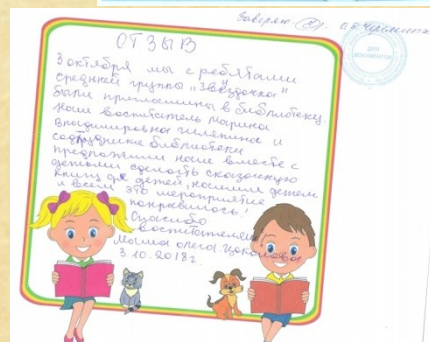 Заверяю
ДЛЯ ДОКУМЕНТОВ
ОТЗЫВ
3 октября мы с ребятами
средней группы "Звёздочка"
были приглашины в библиотеку.
Наш воспитатель Марина
Владимировна и
сотрудники библиотеки
предложили нам вместе с
детьми сделать сказочную
книгу для детей, нашим детям
и всем это мероприятие
понравилось!
Спасибо
воспитателям
Мама Олега
3.10.2018г.